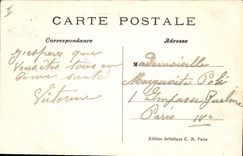 CARTE POSTALE
Correspondance
Adresse
j'espère que
Vous êtes tous en
bonne santé
Victorine
Mademoiselle
Marguerite
1 Impasse
Paris
Edition Artistique C. M. Paris